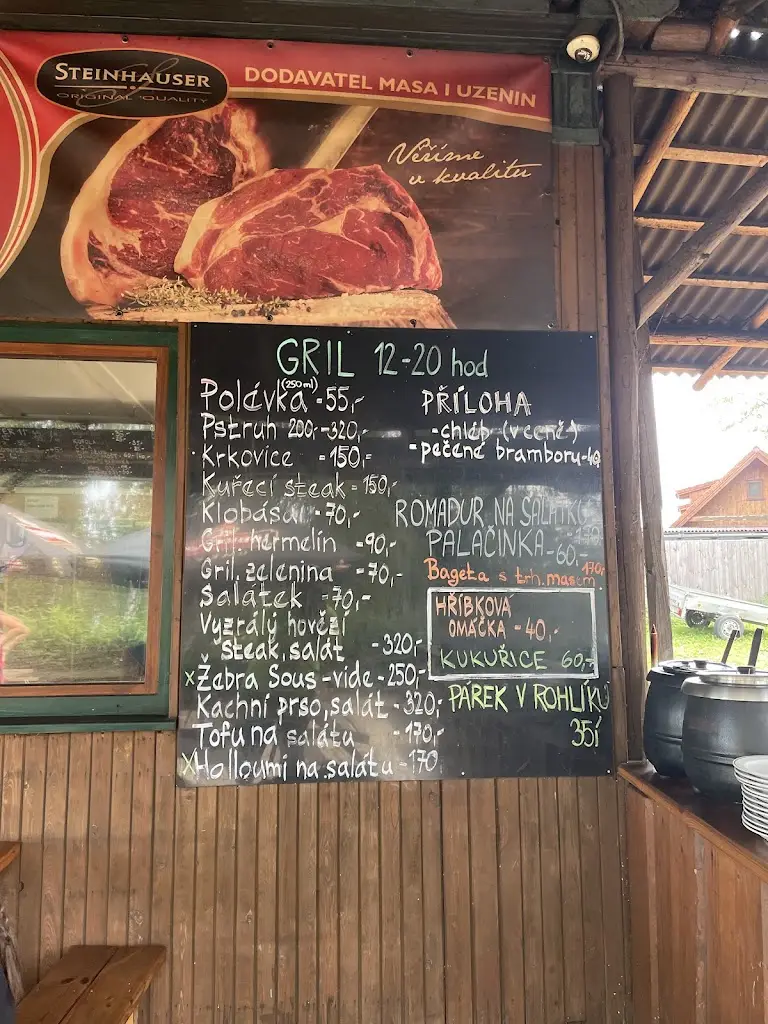 STEINHAUSER
ORIGINAL QUALITY
DODAVATEL MASA I UZENIN
Věříme
v kvalitu
GRIL 12-20 hod
Polévka (250ml) -55,-
Pstruh 200,--320,-
Krkovice -150,-
Kuřecí steak -150,-
Klobása -70,-
Gril. hermelín -90,-
Gril. zelenina -70,-
Salátek -70,-
Vyzrálý hovězí
steak, salát -320,-
x Žebra Sous-vide-250,-
Kachní prso, salát -320,-
Tofu na salátu -170,-
x Holloumi na salátu -170
PŘÍLOHA
-chléb (v ceně)
-pečené brambory-40
ROMADUR NA SALÁTKU
PALAČINKA-60,-
Bageta s trh. masem 170,-
HŘÍBKOVÁ
OMÁČKA -40,-
KUKUŘICE 60,-
PÁREK V ROHLÍKU
35,-